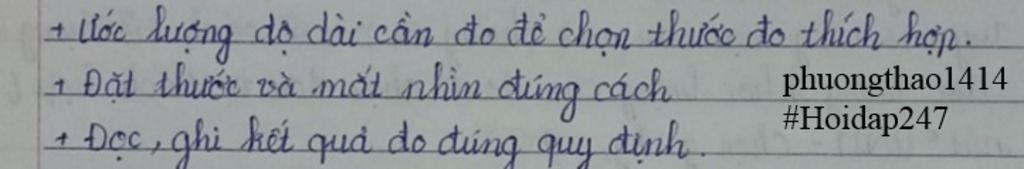 + Ước lượng độ dài cần đo để chọn thước đo thích hợp.
+ Đặt thước và mắt nhìn đúng cách
phuongthao1414
#Hoidap247
+ Đọc, ghi kết quả đo đúng quy định.